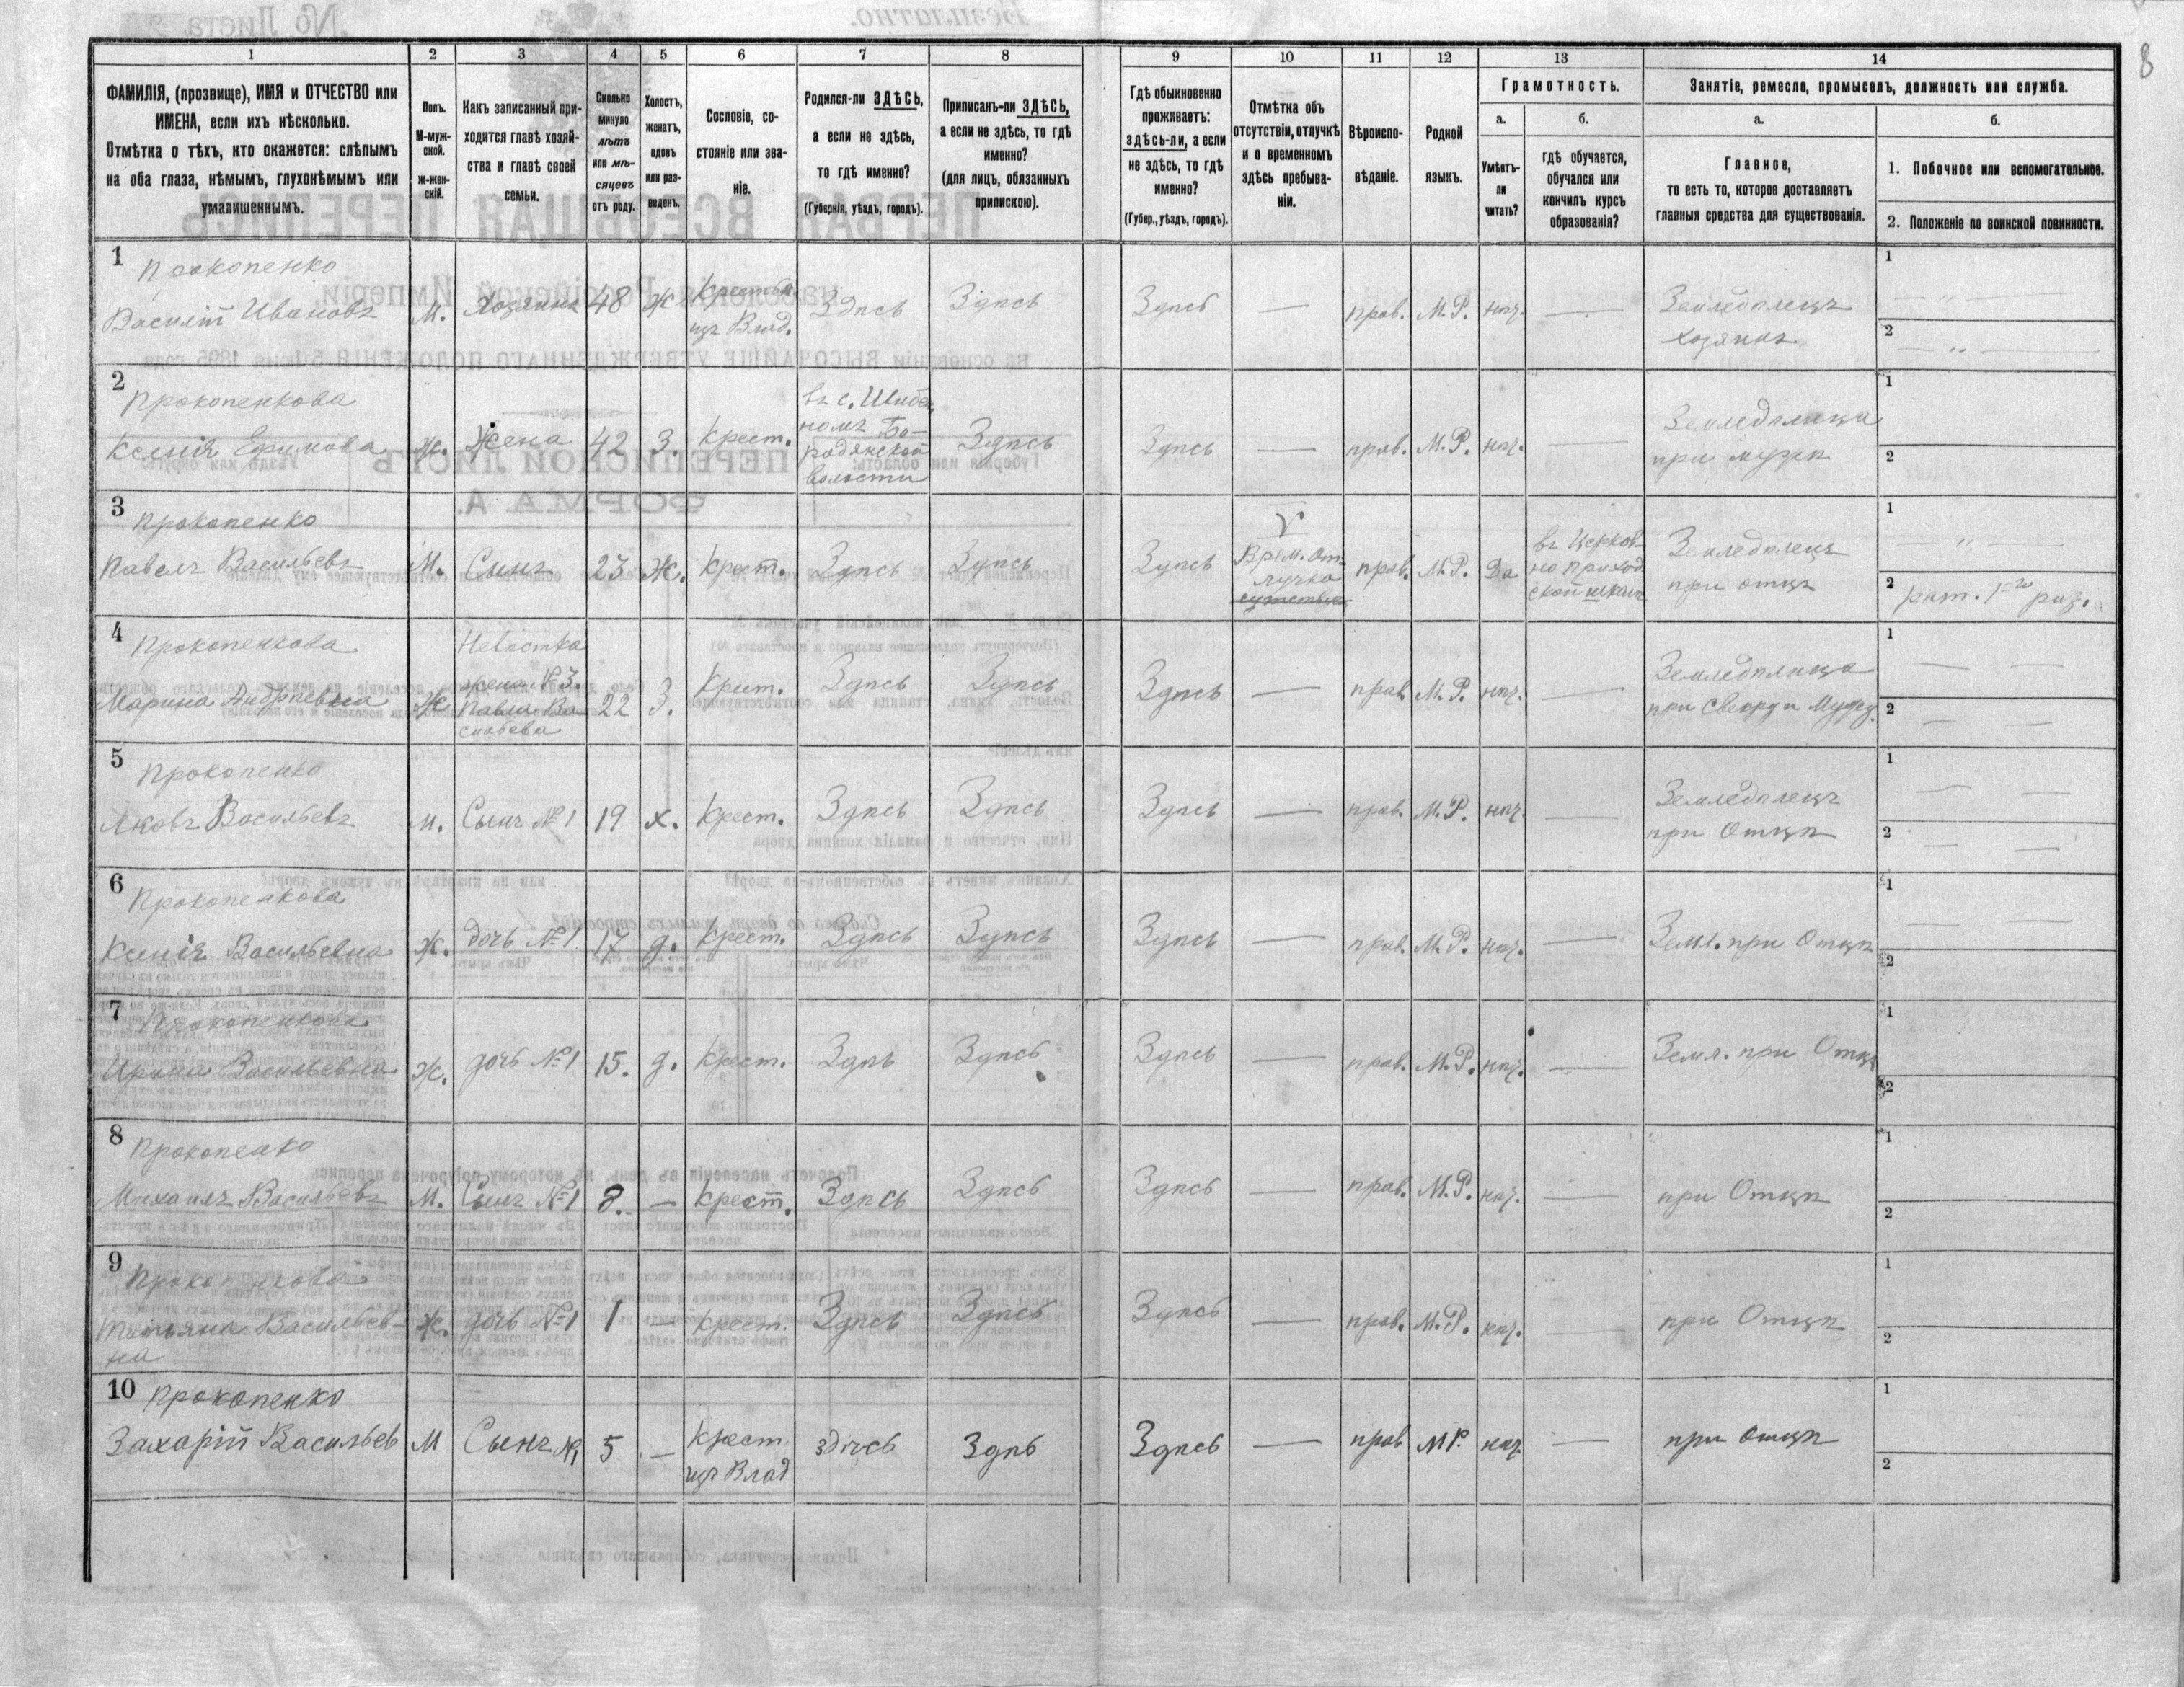 8
1 2 3 4 5 6 7 8 9 10 11 12 13 14
ФАМИЛІЯ, (прозвище), ИМЯ и ОТЧЕСТВО или
ИМЕНА, если ихъ нѣсколько.
Отмѣтка о тѣхъ, кто окажется: слѣпымъ
на оба глаза, нѣмымъ, глухонѣмымъ или
умалишеннымъ.
Полъ.
М-муж-
ской.
ж-жен-
скій.
Какъ записанный при-
ходится главѣ хозяй-
ства и главѣ своей
семьи.
Сколько
минуло
лѣтъ
или мѣ-
сяцевъ
отъ роду.
Холостъ,
женатъ,
вдовъ
или раз-
веденъ.
Сословіе, со-
стояніе или зва-
ніе.
Родился-ли ЗДѢСЬ,
а если не здѣсь,
то гдѣ именно?
(Губернія, уѣздъ, городъ).
Приписанъ-ли ЗДѢСЬ,
а если не здѣсь, то гдѣ
именно?
(для лицъ, обязанныхъ
припискою).
Гдѣ обыкновенно
проживаетъ:
здѣсь-ли, а если
не здѣсь, то гдѣ
именно?
(Губер., уѣздъ, городъ).
Отмѣтка объ
отсутствіи, отлучкѣ
и о временномъ
здѣсь пребыва-
ніи.
Вѣроиспо-
вѣданіе.
Родной
языкъ.
Грамотность.
а.
Умѣетъ-
ли
читать?
б.
гдѣ обучается,
обучался или
кончилъ курсъ
образованія?
Занятіе, ремесло, промыселъ, должность или служба.
а.
Главное,
то есть то, которое доставляетъ
главныя средства для существованія.
б.
1. Побочное или вспомогательное.
2. Положеніе по воинской повинности.
1 Прокопенко
Василій Ивановъ М. Хозяинъ 48 Ж Крестья изъ Влад. Здѣсь Здѣсь Здѣсь — прав. М.Р. нѣт. — Земледѣлецъ
хозяинъ
1 — " —
2 — " —
2 Прокопенкова
Ксенія Ефимова ж. Жена 42 З. Крест.
въ с. Шибен
номъ Бо-
родянской
волости
Здѣсь Здѣсь — прав. М.Р. нѣт. — Земледѣлица
при мужѣ
1
2
3 Прокопенко
Павелъ Васильевъ М. Сынъ 23 Ж. Крест. Здѣсь Здѣсь Здѣсь
V
Врем. от
лучка
прав. М.Р. Да
въ Церков
но приход
ской школѣ
Земледѣлецъ
при отцѣ
1 — " —
2 рат. 1го раз.
4 Прокопенкова
Марина Андрѣевна Ж
Невѣстка
жена № 3.
Павла Ва
сильева
22 З. Крест. Здѣсь Здѣсь Здѣсь — прав. М.Р. нѣт. — Земледѣлица
при Свекрѣ и Мужѣ
1 — —
2 — —
5 Прокопенко
Яковъ Васильевъ м. Сынъ № 1 19 х. Крест. Здѣсь Здѣсь Здѣсь — прав. М.Р. нѣт. — Земледѣлецъ
при Отцѣ
1 — —
2 — —
6 Прокопенкова
Ксенія Васильевна Ж. дочь № 1. 17 д. Крест. Здѣсь Здѣсь Здѣсь — прав. М.Р. нѣт. — Земл. при Отцѣ
1 — —
2
7 Прокопенкова
Ирина Васильевна Ж. дочь № 1 15. д. Крест. Здѣь Здѣсь Здѣсь — прав. М.Р. нѣт. — Земл. при Отцѣ
1
2
8 Прокопенко
Михаилъ Васильевъ М. Сынъ № 1 8. — Крест. Здѣсь Здѣсь Здѣсь — прав. М.Р. нѣт. — при Отцѣ
1
2
9 Прокопенкова
Татьяна Васильев- Ж. дочь № 1 1 — Крест. Здѣсь Здѣсь Здѣсь — прав. М.Р. нѣт. — при Отцѣ
на
1
2
10 Прокопенко
Захарій Васильев М Сынъ № 1 5 — Крест изъ Влад здѣсь Здѣь Здѣсь — прав М Р. нѣт — при отцѣ
1
2